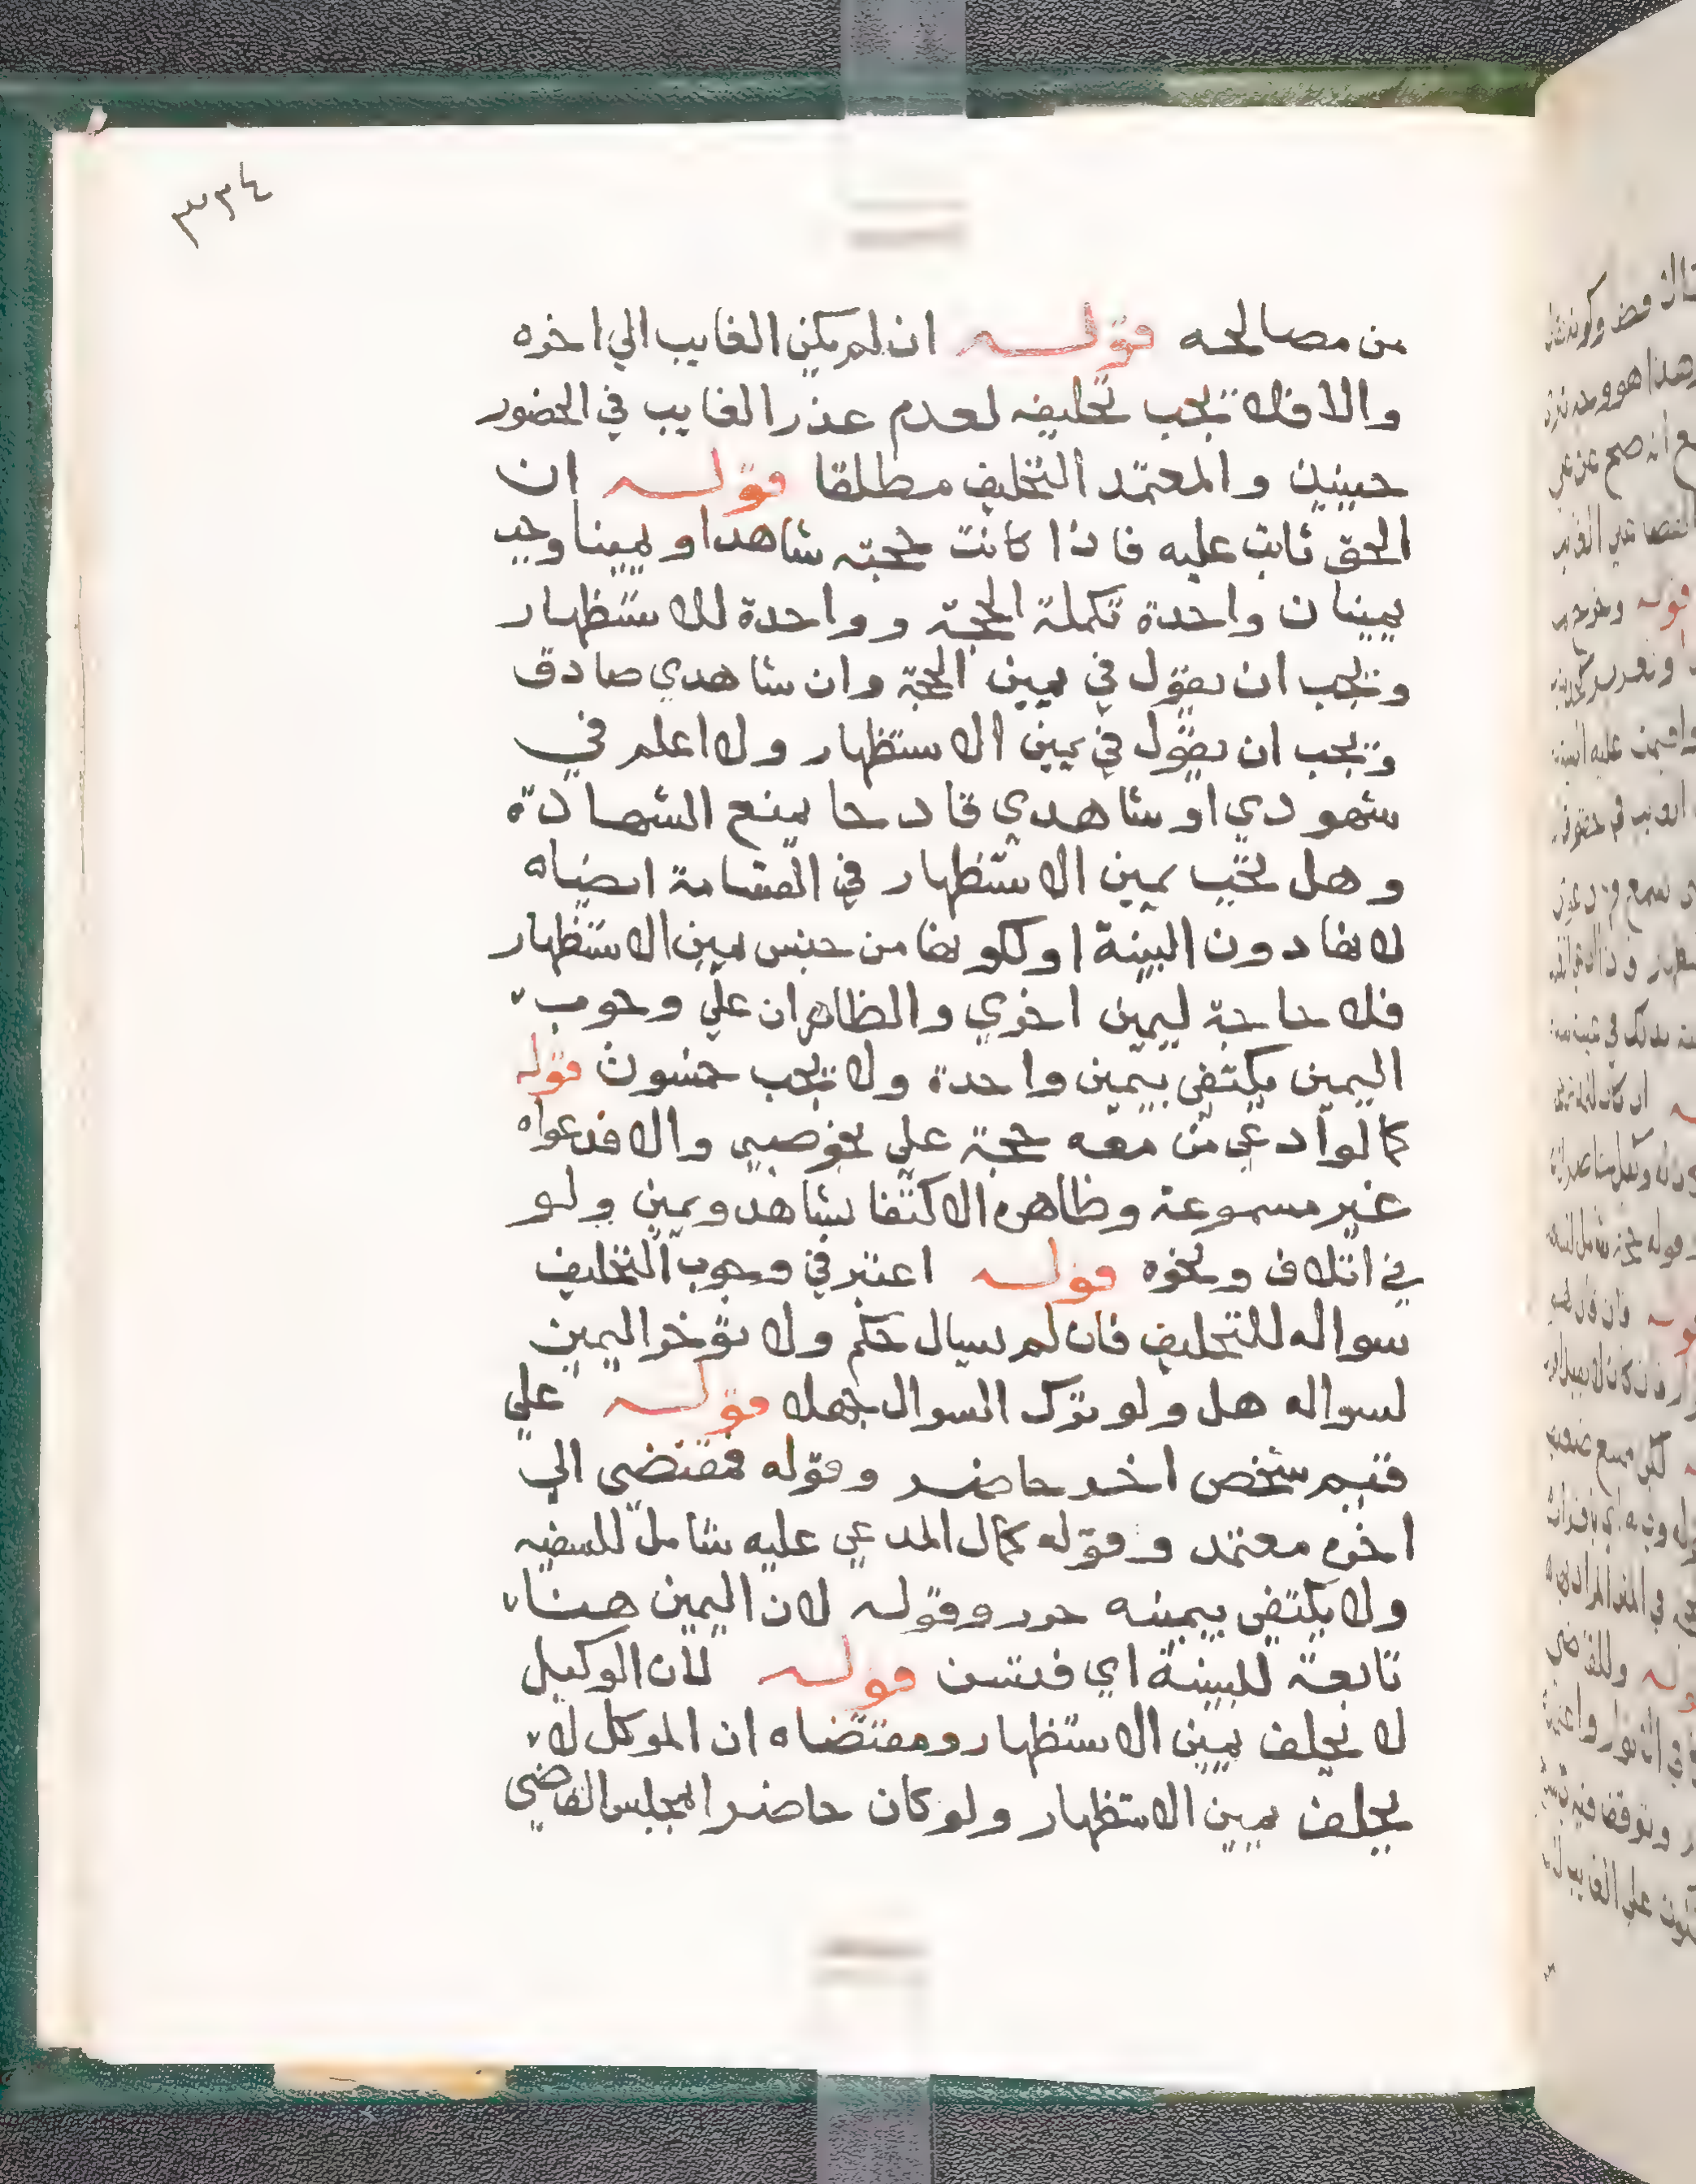 ٣٣٤
من مصالحه قوله ان لم يكن الغايب الي اخره
والا فلا تجب تحليفه لعدم عذر الغايب في الحضور
حينيذ والمعتمد التحليف مطلقا قوله ان
الحق ثابت عليه فاذا كانت حجته شاهدا ويمينا وجب
يمينان واحدة تكملة الحجة وواحدة للاستظهار
ويجب ان يقول في يمين الحجة وان شاهدي صادق
ويجب ان يقول في يمين الاستظهار ولا اعلم في
شهودي او شاهدي قادحا يمنع الشهادة
وهل تجب يمين الاستظهار في القسامة ايضا ه
لانها دون البينة او لكونها من جنس يمين الاستظهار
فلا حاجة ليمين اخري والظاهر ان علي وجوب
اليمين يكتفي بيمين واحدة ولا تجب خمسون قوله
كما لو ادعي من معه حجة علي نحو صبي والا فدعواه
غير مسموعة وظاهره الاكتفا بشاهد ويمين ولو
في اتلاف ونحوه قوله اعتبر في وجوب التحليف
سواله للتحليف فان لم يسال حكم ولا توخر اليمين
لسواله هل ولو ترك السوال جهلا قوله علي
قيم شخص اخر حاضر وقوله فمقتضي الي
اخره معتمد وقوله كمال المدعي عليه شامل للسفيه
ولا يكتفي بيمينه حرر وقوله لان اليمين هنا
تابعة للبينة اي فتسن قوله لان الوكيل
لا يحلف يمين الاستظهار ومقتضاه ان الموكل لا
يحلف يمين الاستظهار ولو كان حاضرا بمجلس القاضي